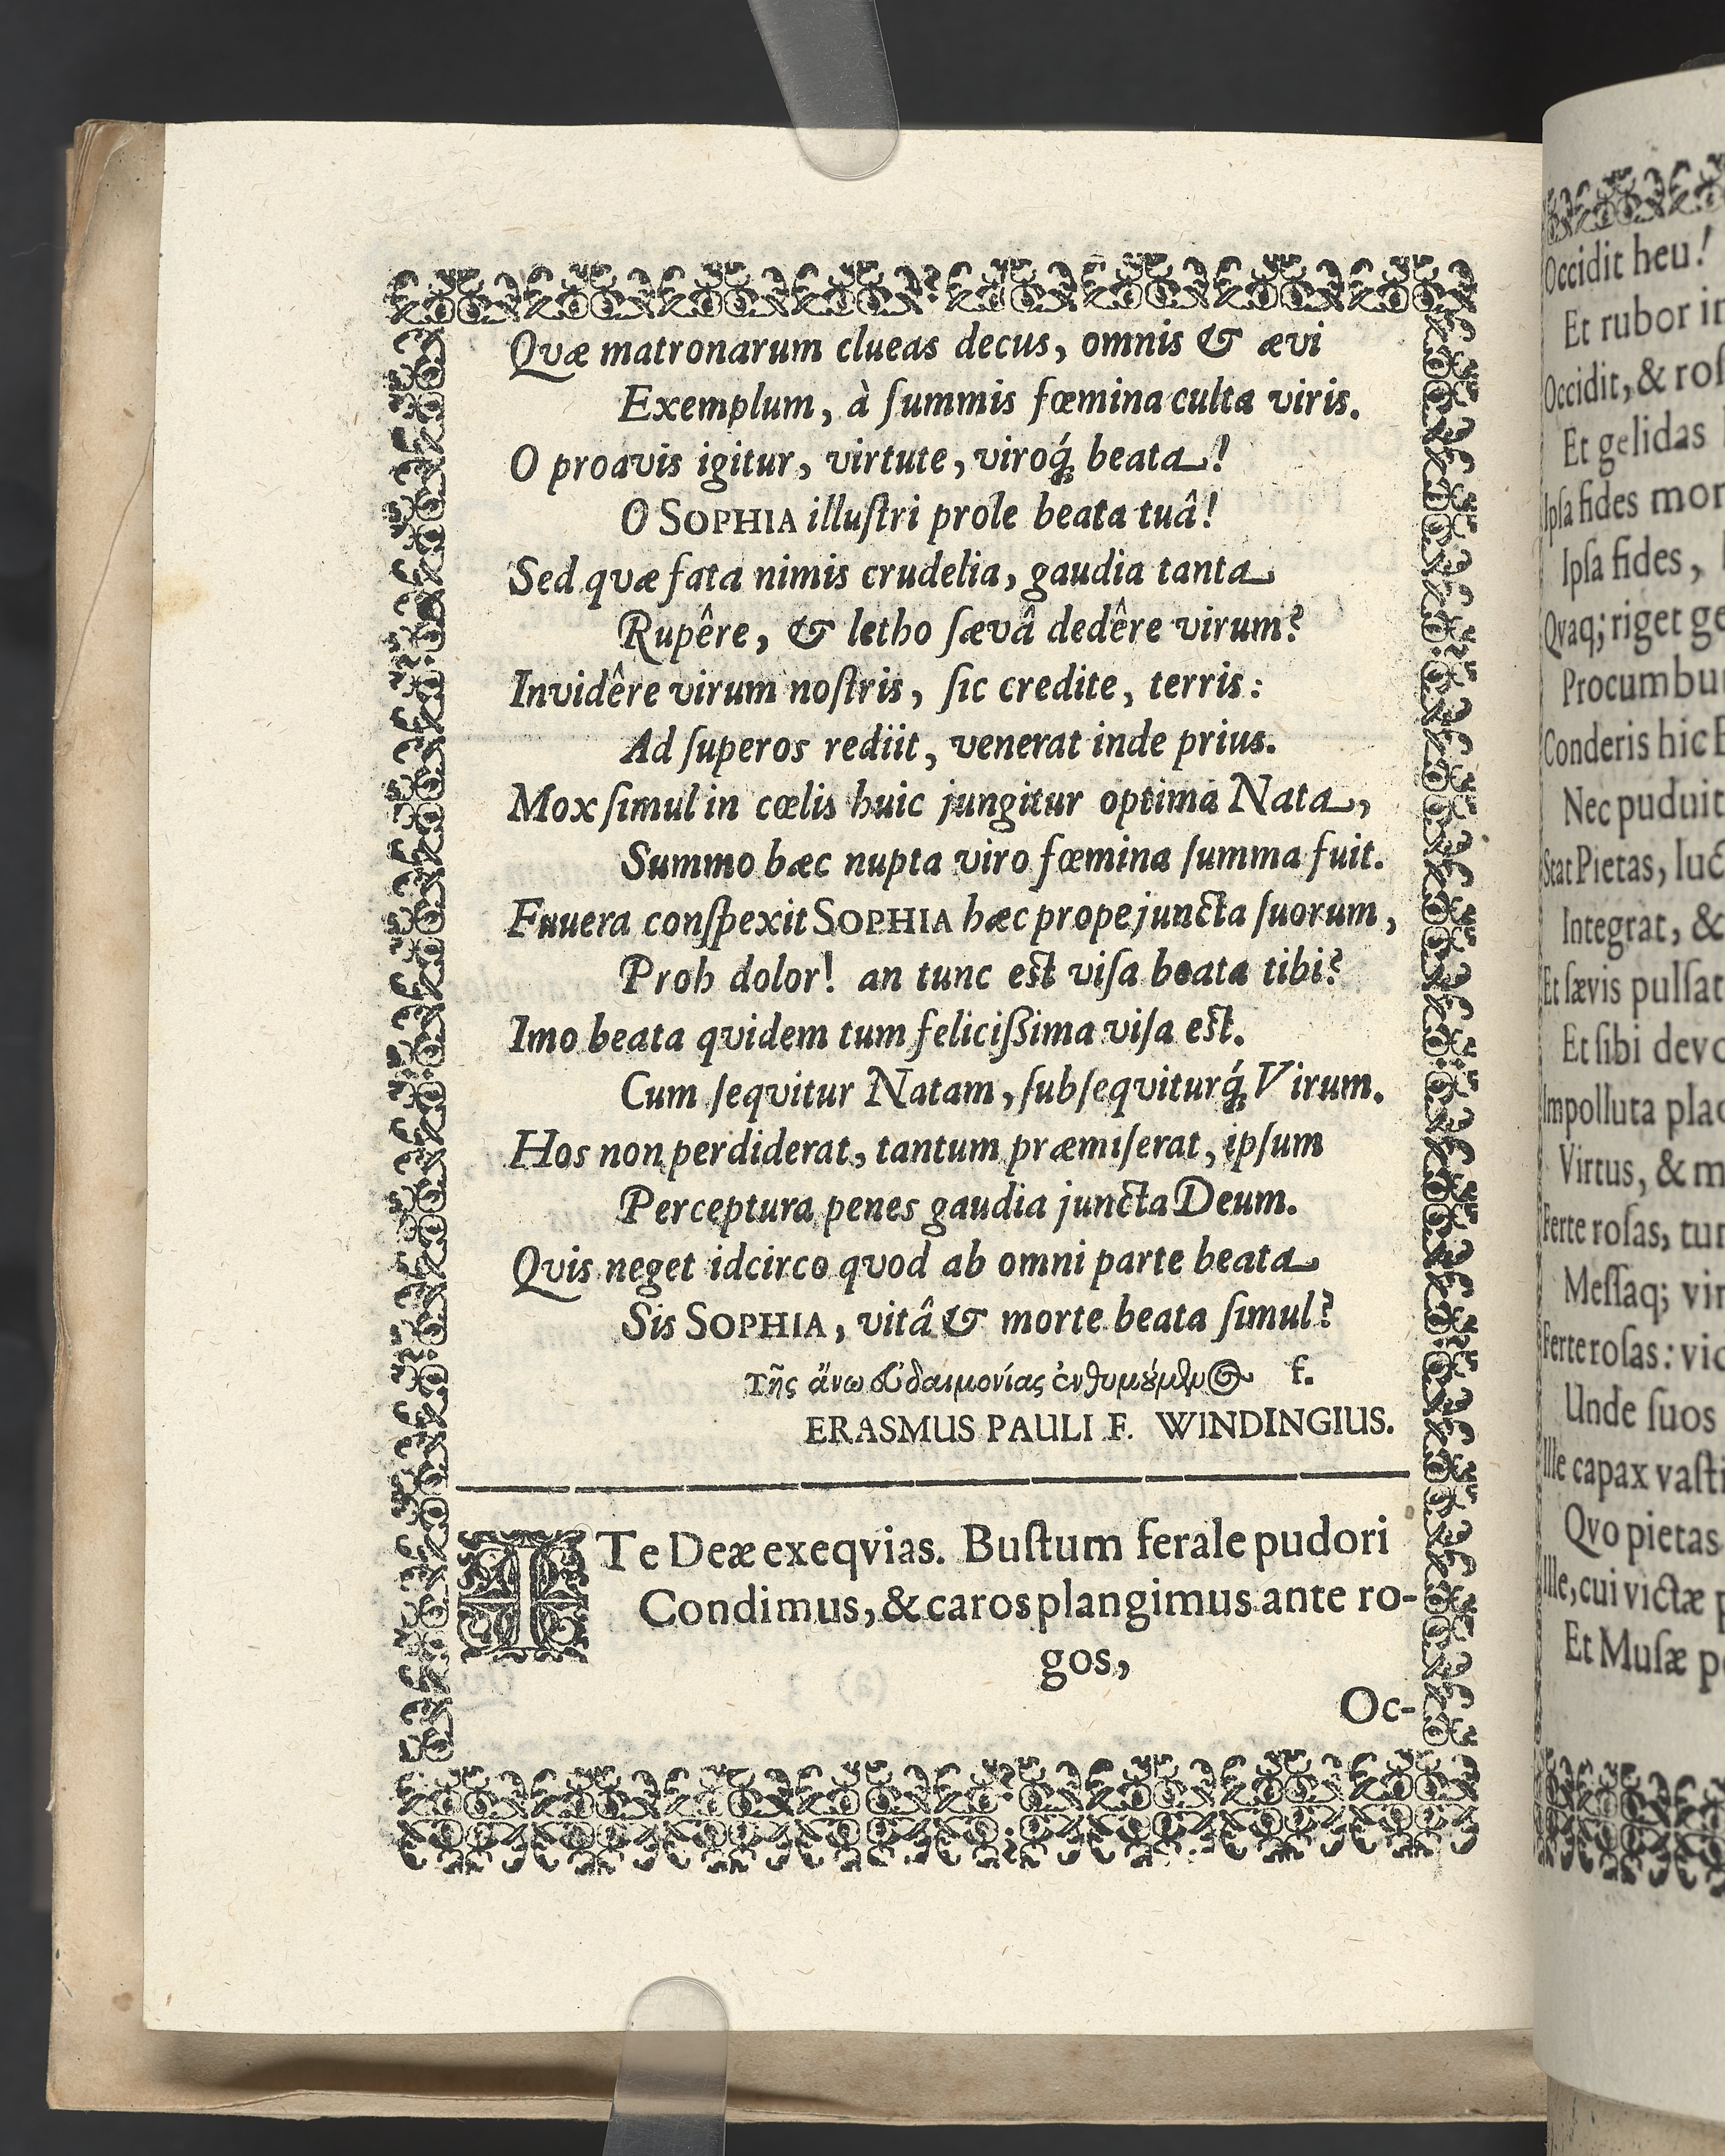 Qvæ matronarum clueas decus, omnis & ævi
Exemplum, à ſummis fœmina culta viris.
O proavis igitur, virtute, viroq́; beata!
O SOPHIA illuſtri prole beata tuâ!
Sed qvæ fata nimis crudelia, gaudia tanta
Rupêre, & letho ſævâ dedêre virum?
Invidêre virum noſtris, ſic credite, terris:
Ad ſuperos rediit, venerat inde prius.
Mox ſimul in cœlis huic jungitur optima Nata,
Summo hæc nupta viro fœmina ſumma fuit.
Fuuera conſpexit SOPHIA hæc prope juncta ſuorum,
Proh dolor! an tunc eſt viſa beata tibi?
Imo beata qvidem tum feliciſſima viſa eſt.
Cum ſeqvitur Natam, ſubſeqviturq́; Virum.
Hos non perdiderat, tantum præmiſerat, ipſum
Perceptura penes gaudia juncta Deum.
Qvis neget idcirco qvod ab omni parte beata
Sis SOPHIA, vitâ & morte beata ſimul?
τῆς ἄνω εὐδαιμονίας ἐνθυμούμενος f.
ERASMUS PAULI F. WINDINGIUS.
ITe Deæ exeqvias. Buſtum ferale pudori
Condimus, & caros plangimus ante ro-
gos,
Oc-
Occidit heu!
Et rubor
Occidit, &
Et gelidas
Ipſa fides
Ipſa fides,
Qvaq; riget
Procumbu
Conderis hic
Nec puduit
Stat Pietas,
Integrat, &
Et ſævis pulſat
Et ſibi
Impolluta
Virtus, &
Ferte roſas,
Meſſaq;
Ferte roſas:
Unde ſuos
Ille capax
Qvo pietas
Ille, cui victæ
Et Muſæ